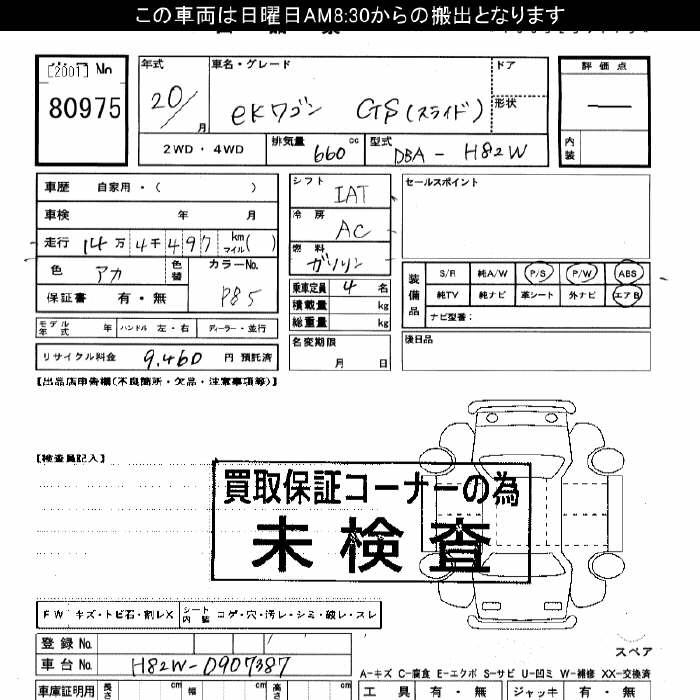 この車両は日曜日AM8:30からの搬出となります
[2001] No
80975
年式 20/ 月
車名・グレード eKワゴン GS(スライド)
ドア
形状
評価点
―
内装
2WD・4WD
排気量 660 cc
型式 DBA - H82W
車歴 自家用・( )
車検 年 月
走行 14万4千497 km マイル( )
色 アカ 色替 カラーNo. P85
保証書 有・無
モデル年式 年 ハンドル 左・右 ディーラー・並行
リサイクル料金 9,460 円 預託済
シフト IAT
冷房 AC
燃料 ガソリン
乗車定員 4 名
積載量 kg
総重量 kg
名変期限 月 日
セールスポイント
装備品
S/R 純A/W P/S P/W ABS
純TV 純ナビ 革シート 外ナビ エアB
ナビ型番:
後日品
【出品店申告欄(不良箇所・欠品・注意事項等)】
【検査員記入】
買取保証コーナーの為
未検査
FW キズ・トビ石・割レX シート内装 コゲ・穴・汚レ・シミ・破レ・スレ
登録No.
車台No. H82W-0907387
スペア
A-キズ C-腐食 E-エクボ S-サビ U-凹ミ W-補修 XX-交換済
車庫証明用 長さ cm 幅 cm 高さ cm
工具 有・無 ジャッキ 有・無